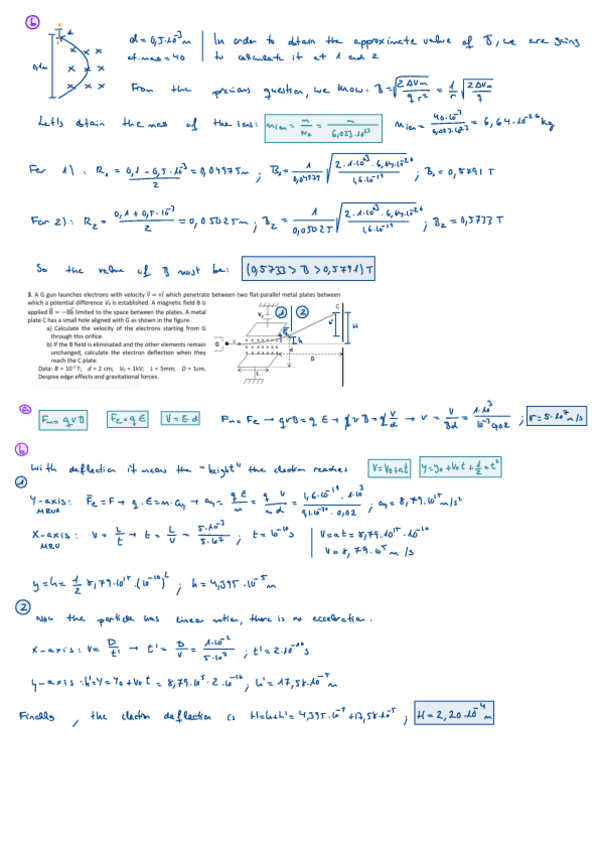 b
d = 0,5·10⁻³ m
at. mas = 40
In order to obtain the approximate value of B, we are going
to calculate it at 1 and 2
0,1m
From the previous question, we know: B = √(2ΔVm / q r²) = 1/r √(2ΔVm / q)
Let's obtain the mas of the ions: m ion = m / N_A = m / 6,023·10²³
m ion = 40·10⁻³ / 6,023·10²³ = 6,64·10⁻²⁶ kg
For 1): R₁ = (0,1 - 0,5·10⁻³) / 2 = 0,04975 m ; B₁ = 1/0,04975 √(2·1·10³·6,64·10⁻²⁶ / 1,6·10⁻¹⁹) ; B₁ = 0,5791 T
For 2): R₂ = (0,1 + 0,5·10⁻³) / 2 = 0,05025 m ; B₂ = 1/0,05025 √(2·1·10³·6,64·10⁻²⁶ / 1,6·10⁻¹⁹) ; B₂ = 0,5733 T
So the value of B must be: (0,5733 > B > 0,5791) T
3. A G gun launches electrons with velocity v⃗ = vi⃗ which penetrate between two flat-parallel metal plates between
which a potential difference V₀ is established. A magnetic field B is
applied B⃗ = −Bk⃗ limited to the space between the plates. A metal
plate C has a small hole aligned with G as shown in the figure.
a) Calculate the velocity of the electrons starting from G
through this orifice.
b) If the B field is eliminated and the other elements remain
unchanged, calculate the electron deflection when they
reach the C plate.
Data: B = 10⁻³ T; d = 2 cm; V₀ = 1kV; L = 5mm; D = 1cm.
Despise edge effects and gravitational forces.
1 2
C
V₀
H
h
G
d
D
L
a
Fm = qvB
Fe = qE
V = E·d
Fm = Fe → qvB = qE → qvB = q V/d → v = V/Bd = 1·10³ / 10⁻³·0,02 ; v = 5·10⁷ m/s
b
With deflection it means the "height" the electron reaches
V = V₀ + at
y = y₀ + V₀t + ½ = t²
1
Y-axis: F̄e = F → q·E = m·ay → ay = qE/m = q V / m d = 1,6·10⁻¹⁹·1·10³ / 9,1·10⁻³¹·0,02 ; ay = 8,79·10¹⁵ m/s²
MRUA
X-axis: v = L/t → t = L/V = 5·10⁻³ / 5·10⁷ ; t = 10⁻¹⁰ s
MRU
V = at = 8,79·10¹⁵·10⁻¹⁰
V = 8,79·10⁵ m/s
y = h = ½ 8,79·10¹⁵·(10⁻¹⁰)² ; h = 4,395·10⁻⁵ m
2
Now the particle has linear motion, there is no acceleration.
X-axis: V = D/t' → t' = D/V = 1·10⁻² / 5·10⁷ ; t' = 2·10⁻¹⁰ s
y-axis: h' = Y = Y₀ + V₀t = 8,79·10⁵·2·10⁻¹⁰ ; h' = 17,58·10⁻⁵ m
Finally, the electron deflection is H = h + h' = 4,395·10⁻⁵ + 17,58·10⁻⁵ ; H = 2,20·10⁻⁴ m